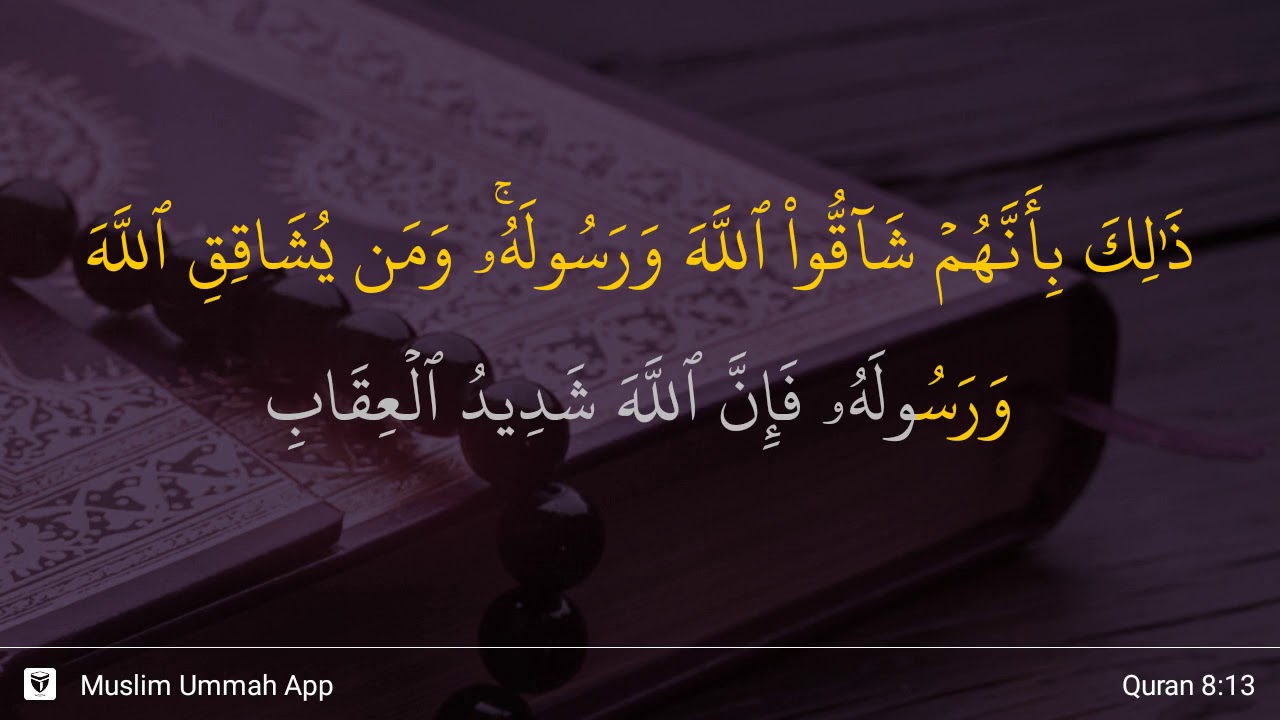 ذَٰلِكَ بِأَنَّهُمۡ شَآقُّواْ ٱللَّهَ وَرَسُولَهُۥۚ وَمَن يُشَاقِقِ ٱللَّهَ
وَرَسُولَهُۥ فَإِنَّ ٱللَّهَ شَدِيدُ ٱلۡعِقَابِ
Muslim Ummah App
Quran 8:13